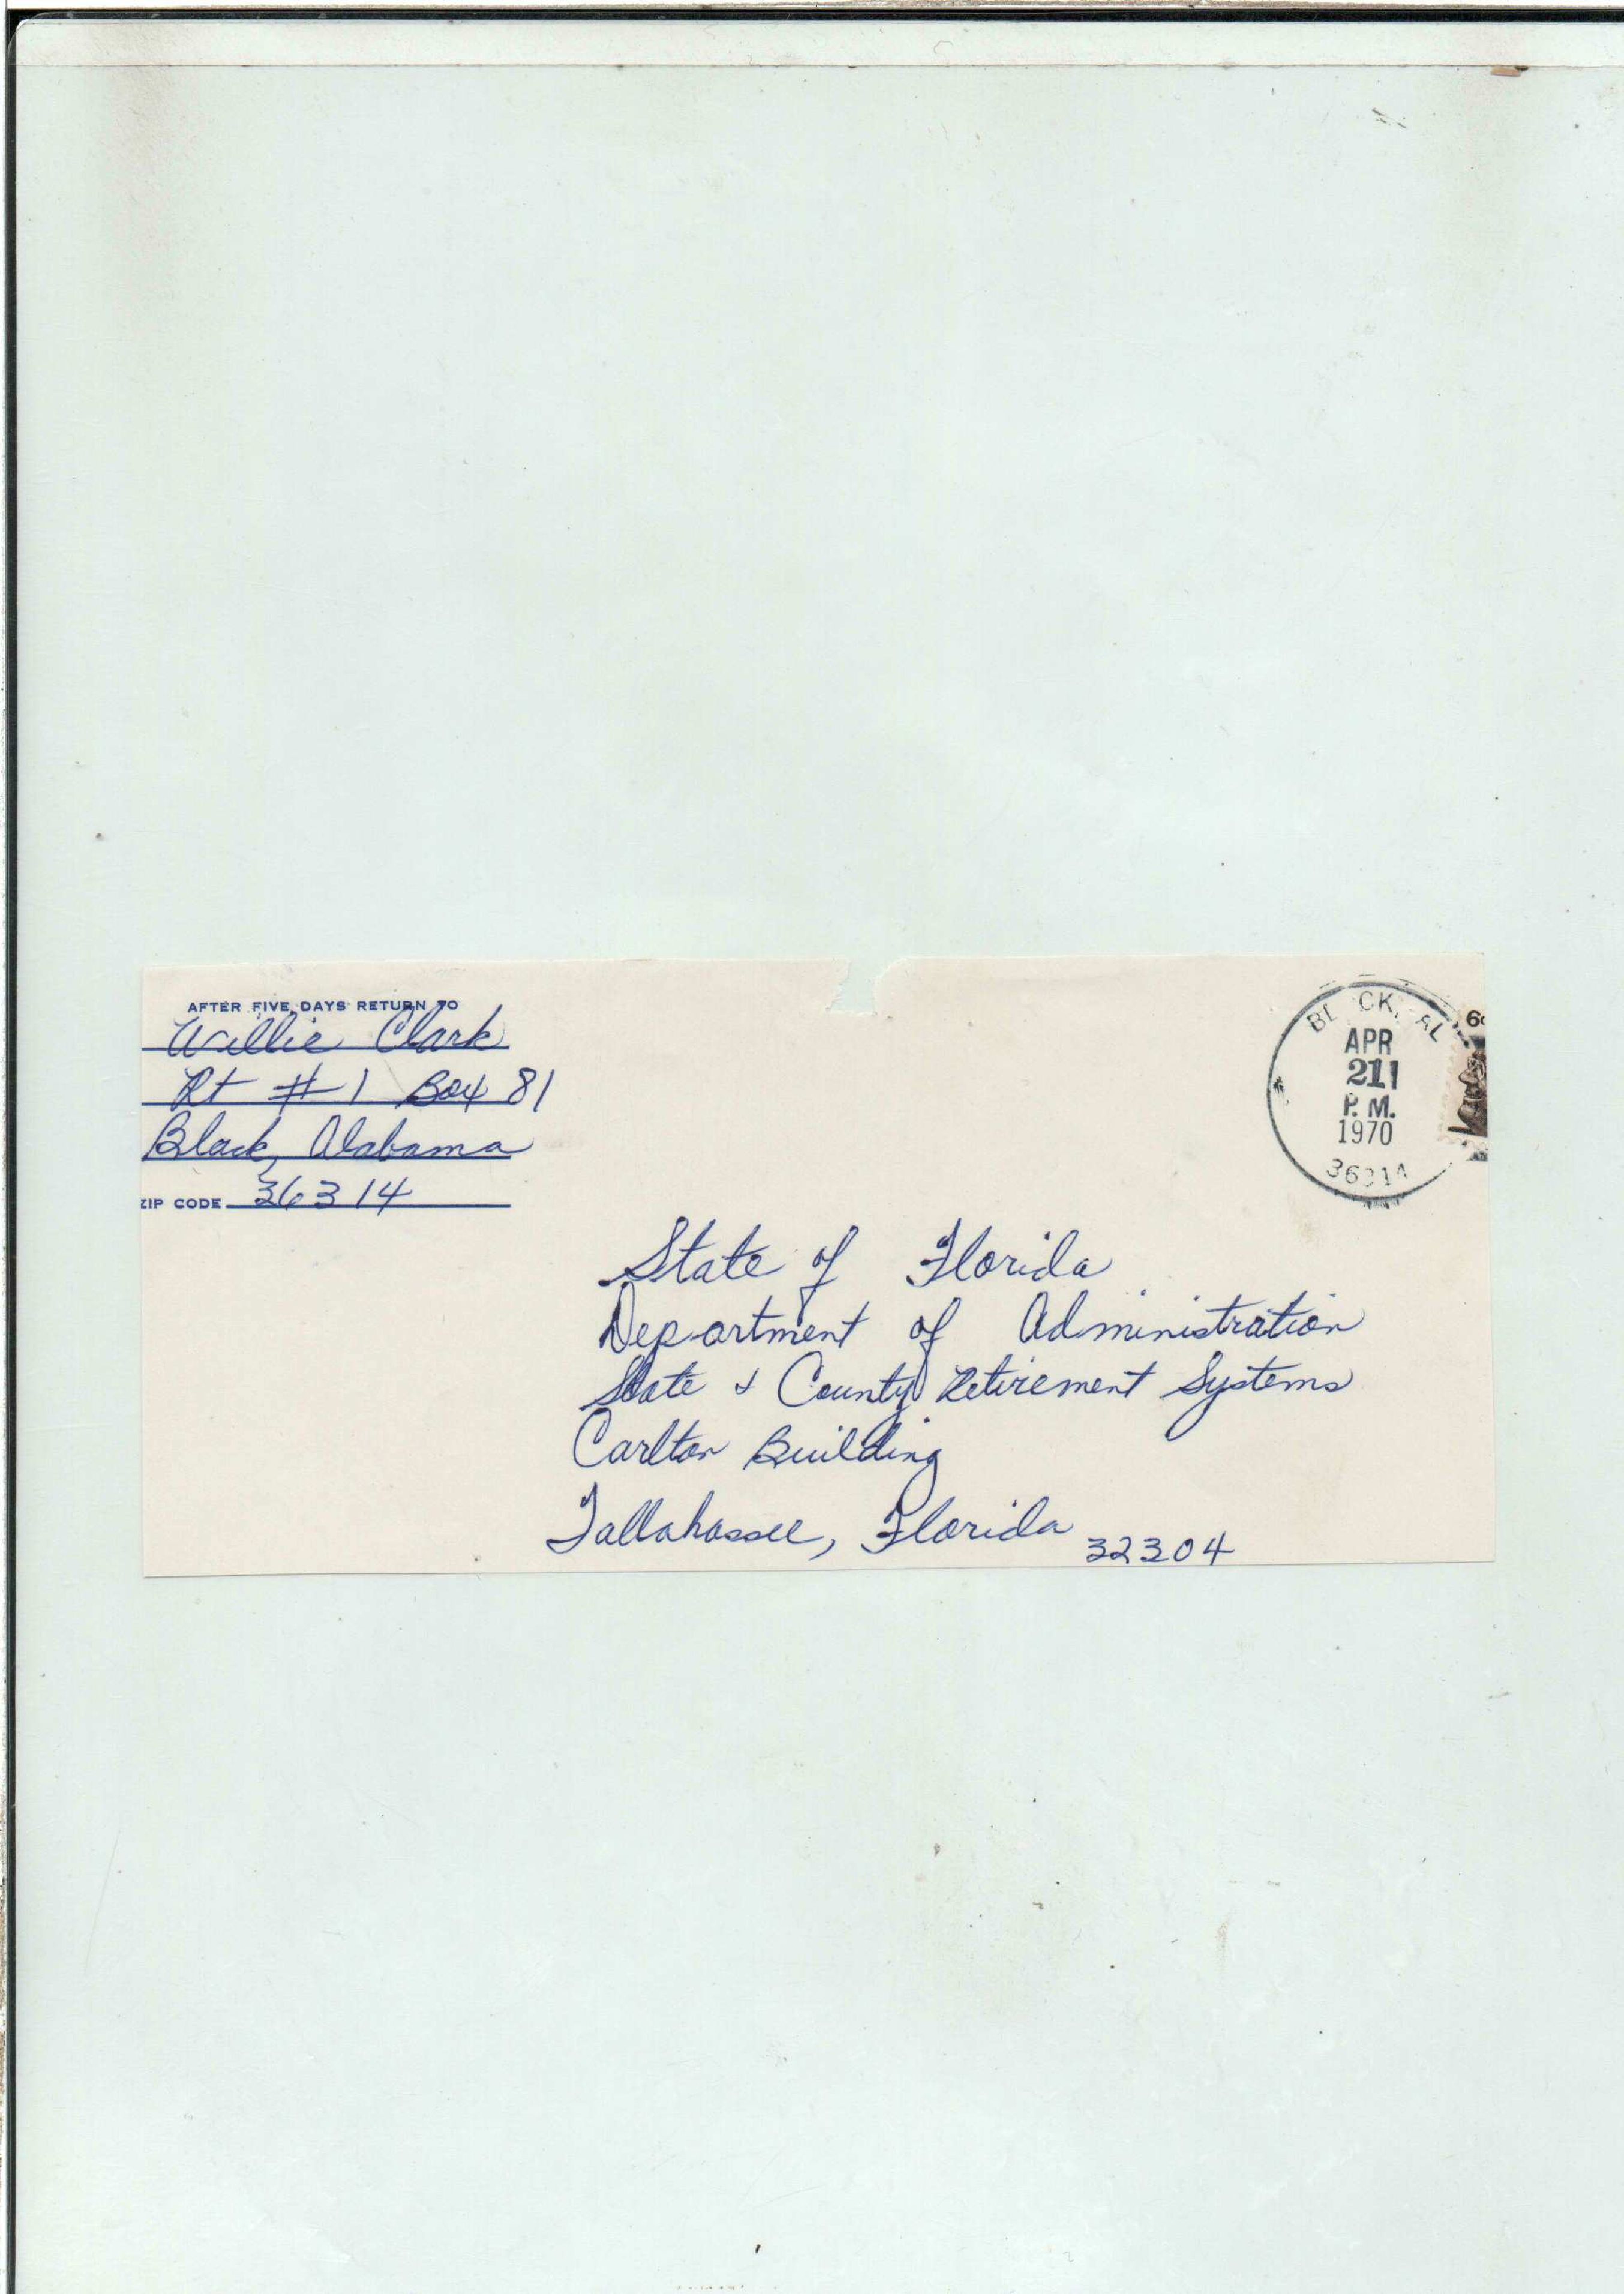 AFTER FIVE DAYS RETURN TO
Willie Clark
Rt # 1 Box 81
Black, Alabama
ZIP CODE 36314
BL CK, AL
APR
211
P. M.
1970
36314
6c
State of Florida
Department of Administration
State & County Retirement Systems
Carlton Building
Tallahassee, Florida 32304